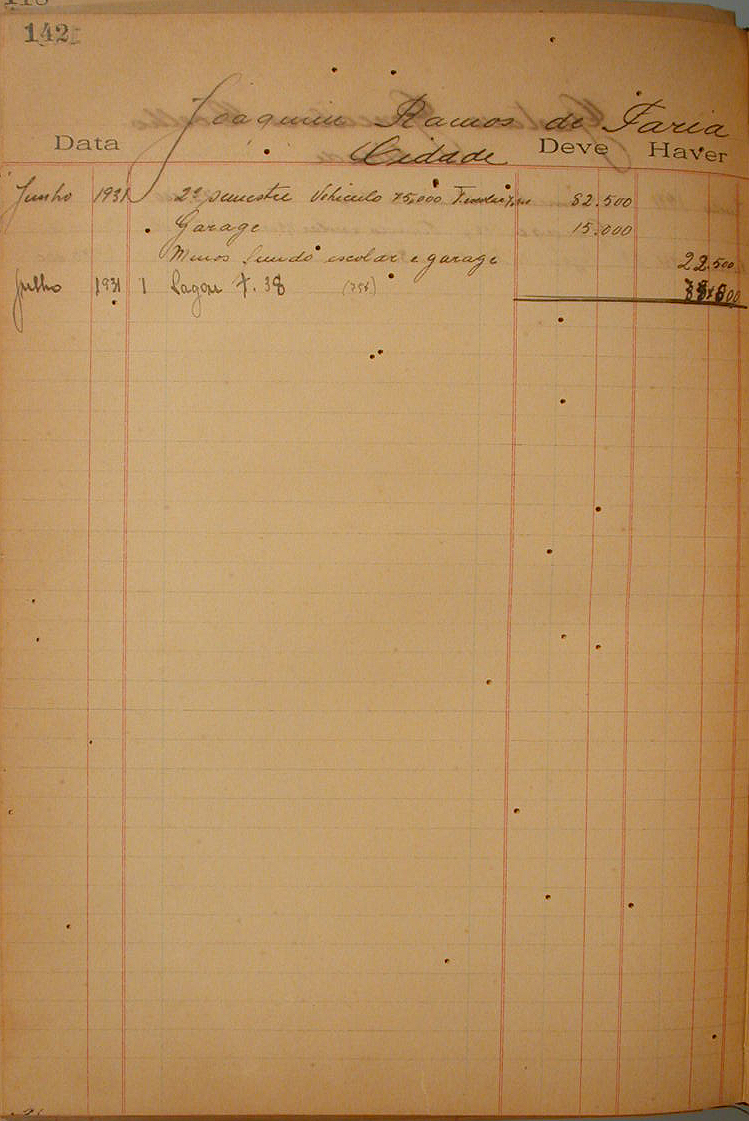 142
Joaquim Ramos de Faria
Data Cidade Deve Haver
Junho 1931 2º semestre Vehiculo 75,000 82.500
Garage 15.000
Menos fundo escolar e garage 22.500
Julho 1931 1 Pagou F. 38